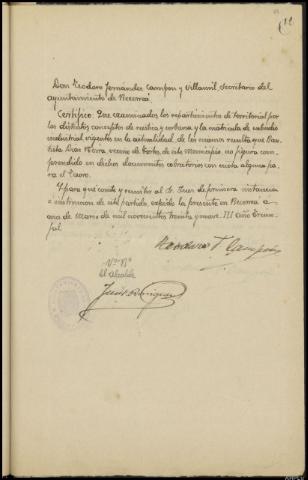 Don Teodoro Fernández Campón y Villamil, Secretario del
ayuntamiento de
Certifico: Que examinados los repartimientos de territorial por
los distintos conceptos de rústica y urbana y la matrícula de subsidio
industrial vigentes en la actualidad, de los mismos resulta que Bau
tista Díaz vecino de de este Municipio, no figura com
prendido en dichos documentos cobratorios con cuota alguna pa
ra el Tesoro.
Y para que conste y remitir al Sr. Juez de primera instancia
e instrucción de este partido expido la presente en
a de Marzo de mil novecientos treinta y nueve. III Año Triun
fal.
Teodoro F. Campón
Vº Bº
El Alcalde